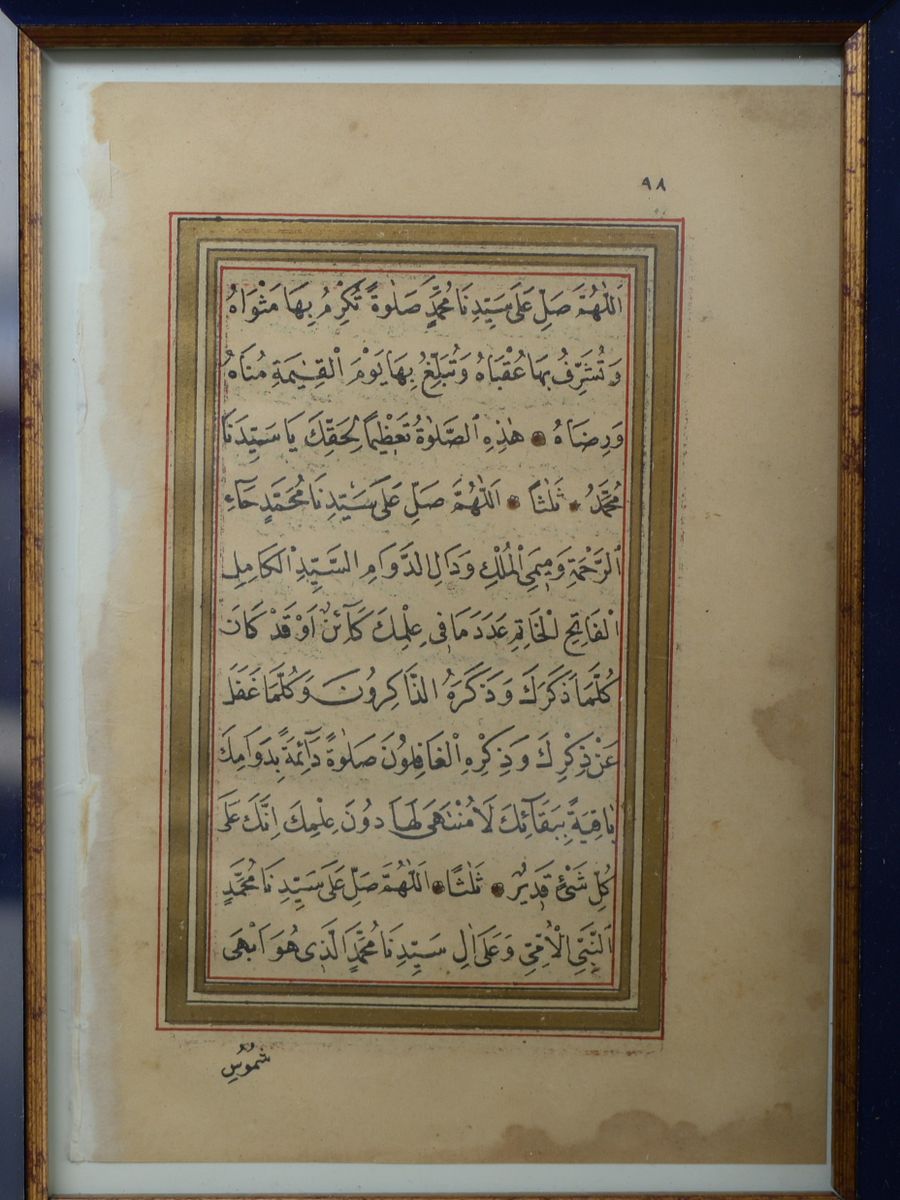 ٩٨
اَللّٰهُمَّ صَلِّ عَلَى سَيِّدِنَا مُحَمَّدٍ صَلٰوةً تُكْرِمُ بِهَا مَثْوَاهُ
وَتُشَرِّفُ بِهَا عُقْبَاهُ وَتُبَلِّغُ بِهَا يَوْمَ الْقِيٰمَةِ مُنَاهُ
وَرِضَاهُ هٰذِهِ الصَّلٰوةُ تَعْظِيمًا لِحَقِّكَ يَا سَيِّدَنَا
مُحَمَّدُ ثَلٰثًا اَللّٰهُمَّ صَلِّ عَلَى سَيِّدِنَا مُحَمَّدٍ حَآءِ
الرَّحْمَةِ وَمِيمَىِ الْمُلْكِ وَدَالِ الدَّوَامِ السَّيِّدِ الْكَامِلِ
الْفَاتِحِ الْخَاتِمِ عَدَدَ مَا فِى عِلْمِكَ كَآئِنٌ اَوْ قَدْ كَانَ
كُلَّمَا ذَكَرَكَ وَذَكَرَهُ الذَّاكِرُونَ وَكُلَّمَا غَفَلَ
عَنْ ذِكْرِكَ وَذِكْرِهِ الْغَافِلُونَ صَلٰوةً دَآئِمَةً بِدَوَامِكَ
بَاقِيَةً بِبَقَآئِكَ لَا مُنْتَهَى لَهَا دُونَ عِلْمِكَ اِنَّكَ عَلَى
كُلِّ شَىْءٍ قَدِيرٌ ثَلٰثًا اَللّٰهُمَّ صَلِّ عَلَى سَيِّدِنَا مُحَمَّدٍ
اَلنَّبِىِّ الْاُمِّىِّ وَعَلَى اٰلِ سَيِّدِنَا مُحَمَّدٍ الَّذِى هُوَ اَبْهَى
شُمُوسِ